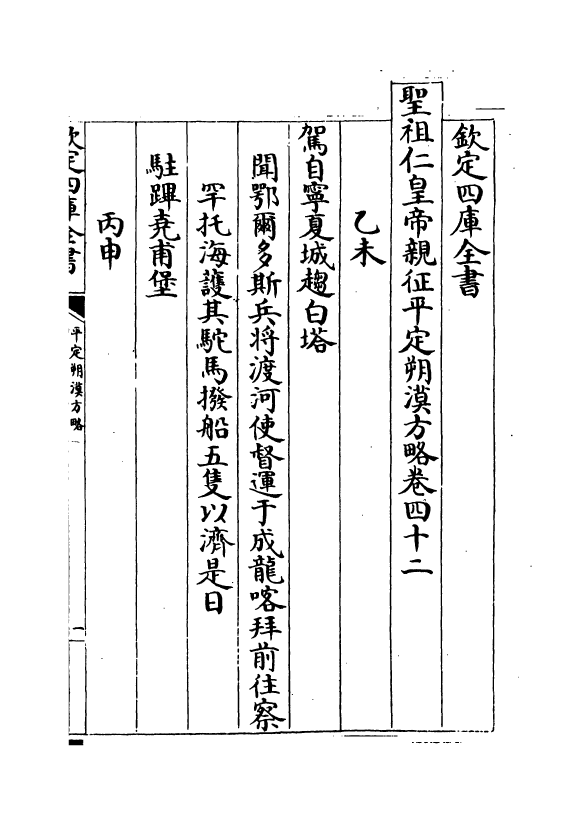 欽定四庫全書
聖祖仁皇帝親征平定朔漠方略卷四十二
乙未
駕自寧夏城趨白塔
聞鄂爾多斯兵将渡河使督運于成龍喀拜前往察
罕托海護其駝馬撥船五隻以濟是日
駐蹕堯甫堡
丙申
欽定四庫全書
平定朔漠方略
一